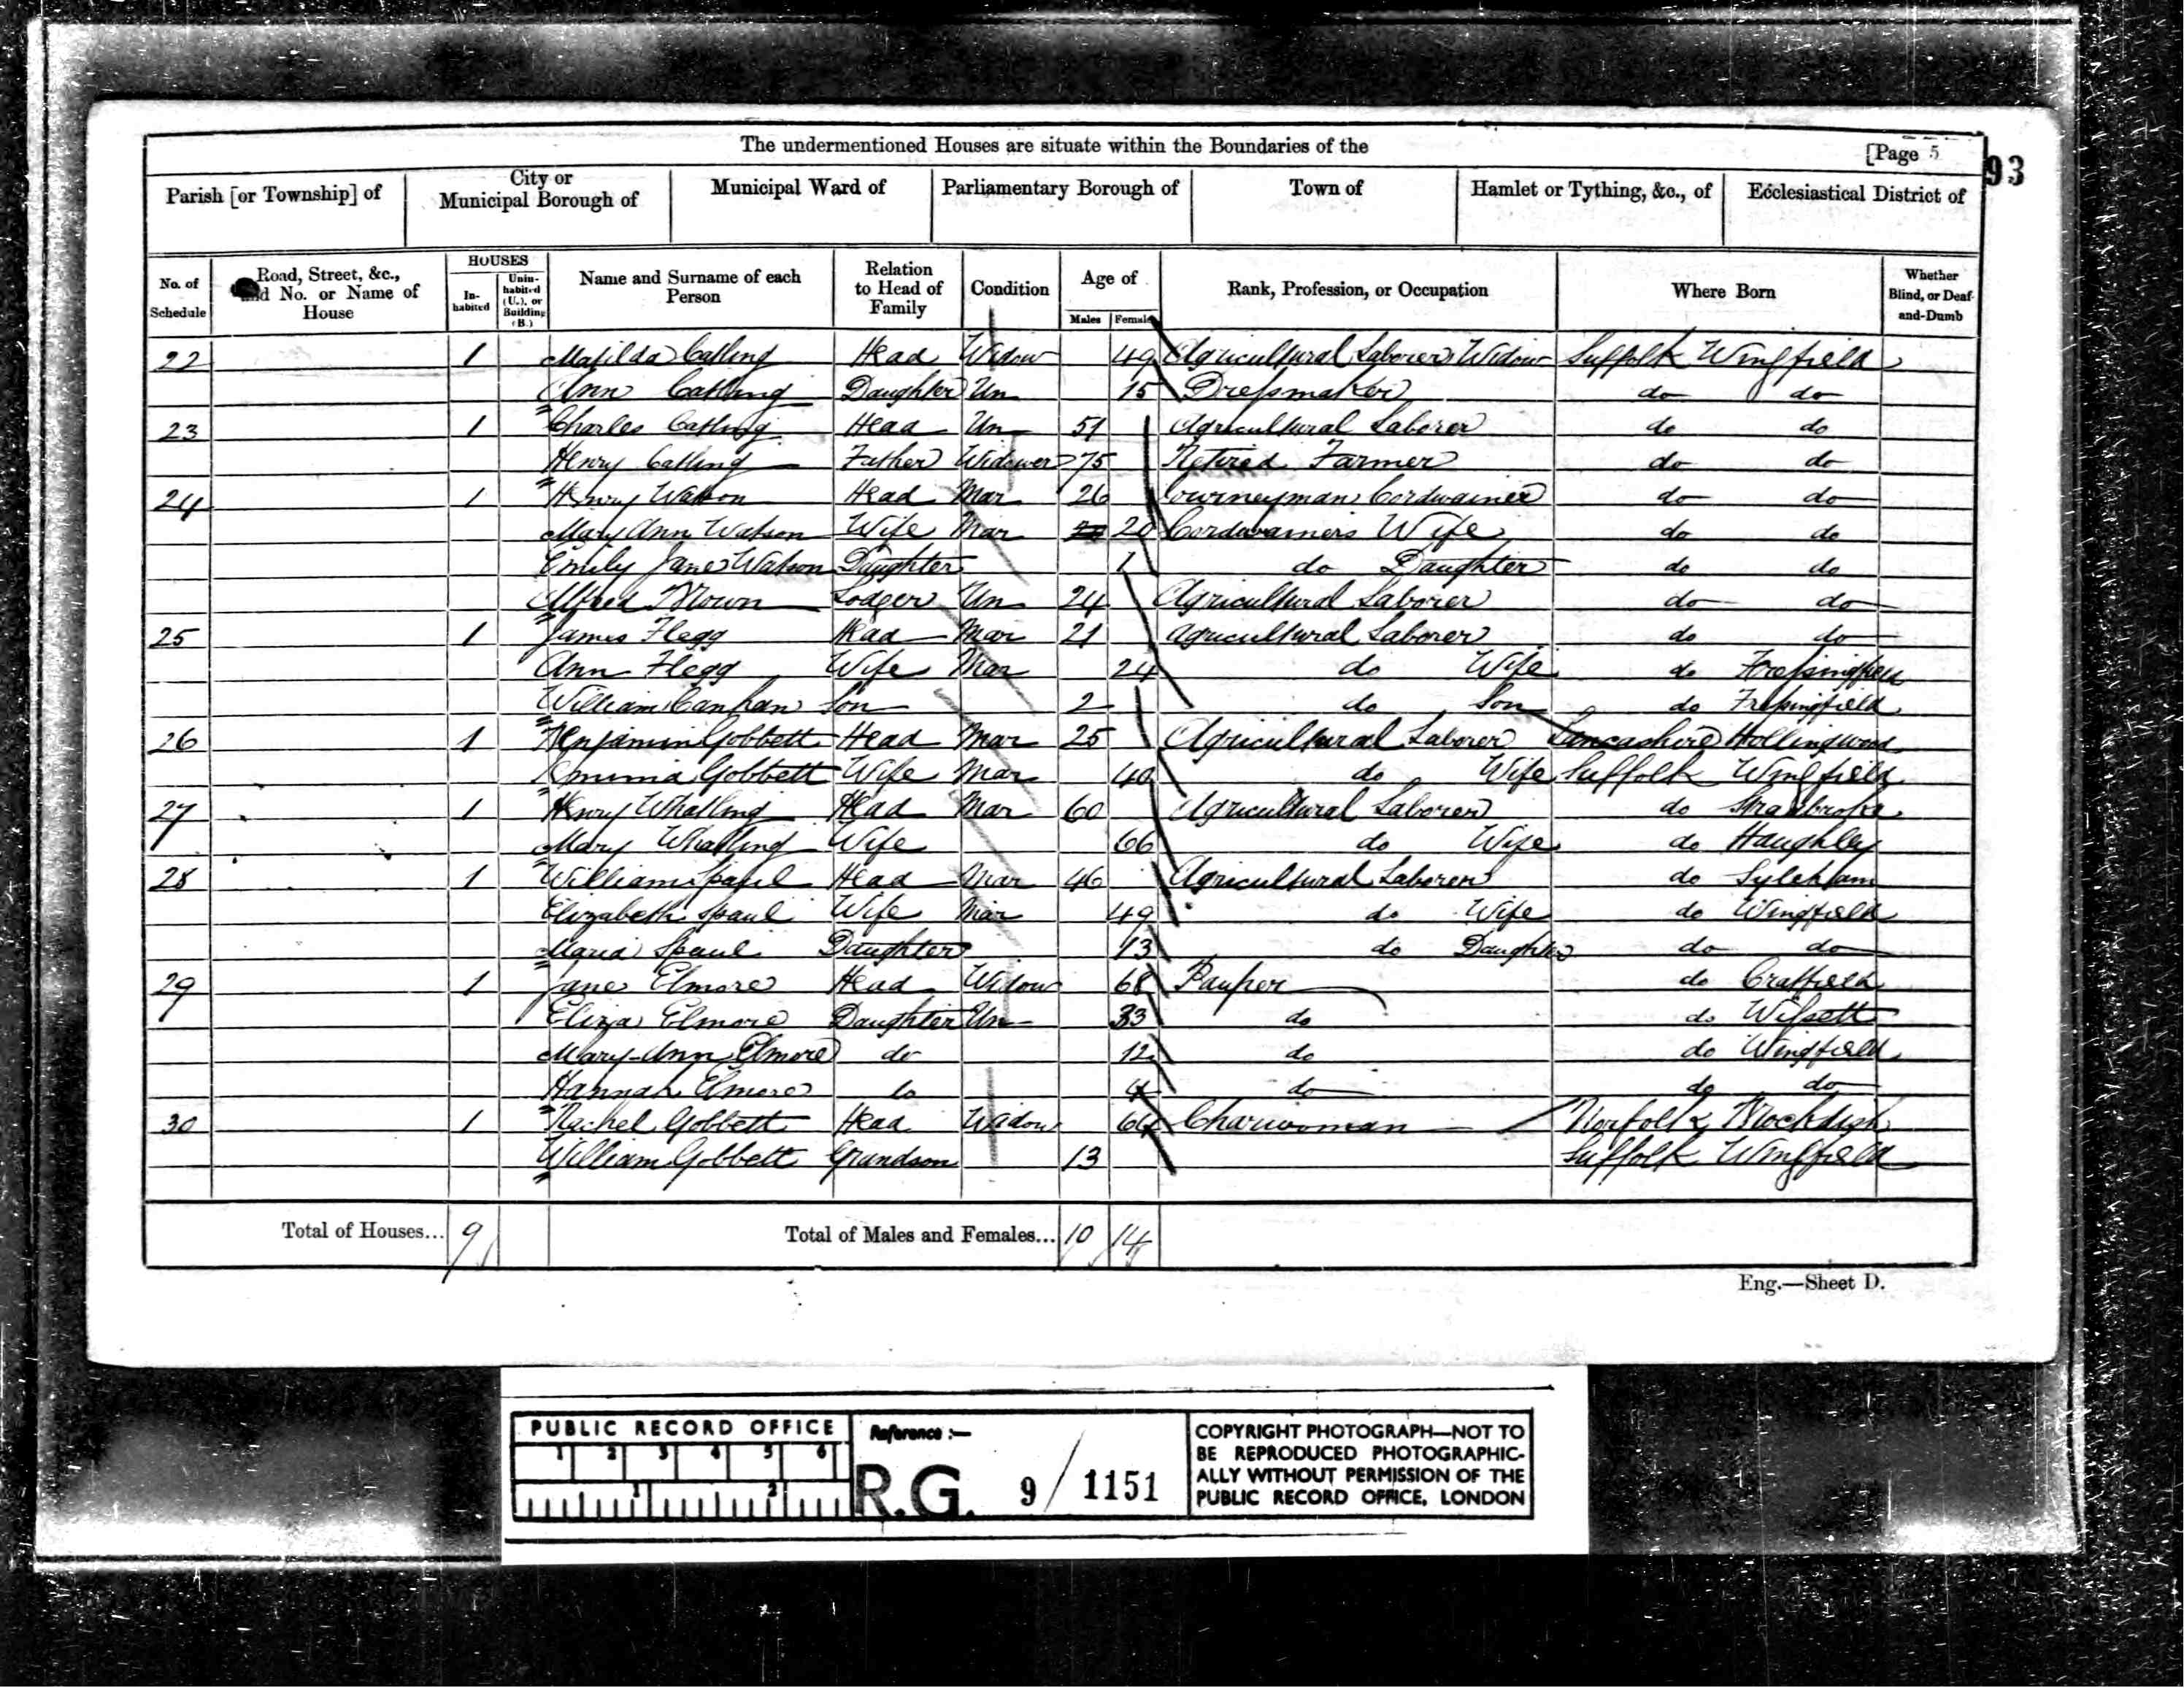 The undermentioned Houses are situate within the Boundaries of the
[Page 5
93
Parish [or Township] of City or Municipal Borough of Municipal Ward of Parliamentary Borough of Town of Hamlet or Tything, &c., of Ecclesiastical District of
No. of Schedule Road, Street, &c., and No. or Name of House HOUSES In-habited Unin-habited (U.), or Building (B.) Name and Surname of each Person Relation to Head of Family Condition Age of Males Females Rank, Profession, or Occupation Where Born Whether Blind, or Deaf-and-Dumb
22 1 Matilda Catling Head Widow 49 Agricultural Laborers Widow Suffolk Wingfield
Ann Catling Daughter Un 15 Dressmaker do do
23 1 Charles Catling Head Un 51 Agricultural Laborer do do
Henry Catling Father Widower 75 Retired Farmer do do
24 1 Henry Watson Head Mar 26 Journeyman Cordwainer do do
Mary Ann Watson Wife Mar 20 Cordwainers Wife do do
Emily Jane Watson Daughter 1 do Daughter do do
Alfred Brown Lodger Un 24 Agricultural Laborer do do
25 1 James Flegg Head Mar 21 Agricultural Laborer do do
Ann Flegg Wife Mar 24 do Wife do Fressingfield
William Canham Son 2 do Son do Fressingfield
26 1 Benjamin Gobbett Head Mar 25 Agricultural Laborer Lancashire Hollingwood
Gobbett Wife Mar 40 do Wife Suffolk Wingfield
27 1 Henry Whatling Head Mar 60 Agricultural Laborer do Stradbroke
Mary Whatling Wife 66 do Wife do Haughley
28 1 William Spaul Head Mar 46 Agricultural Laborer do Syleham
Elizabeth Spaul Wife Mar 49 do Wife do Wingfield
Maria Spaul Daughter 13 do Daughter do do
29 1 Jane Elmore Head Widow 68 Pauper do Cratfield
Eliza Elmore Daughter Un 33 do do Wissett
Mary-Ann Elmore do 12 do do Wingfield
Hannah Elmore do 4 do do do
30 1 Rachel Gobbett Head Widow 64 Charwoman Norfolk Brockdish
William Gobbett Grandson 13 Suffolk Wingfield
Total of Houses... 9 Total of Males and Females... 10 14
Eng.—Sheet D.
PUBLIC RECORD OFFICE
1 2 3 4 5 6
1 2
Reference :—
R.G. 9/1151
COPYRIGHT PHOTOGRAPH—NOT TO
BE REPRODUCED PHOTOGRAPHIC-
ALLY WITHOUT PERMISSION OF THE
PUBLIC RECORD OFFICE, LONDON